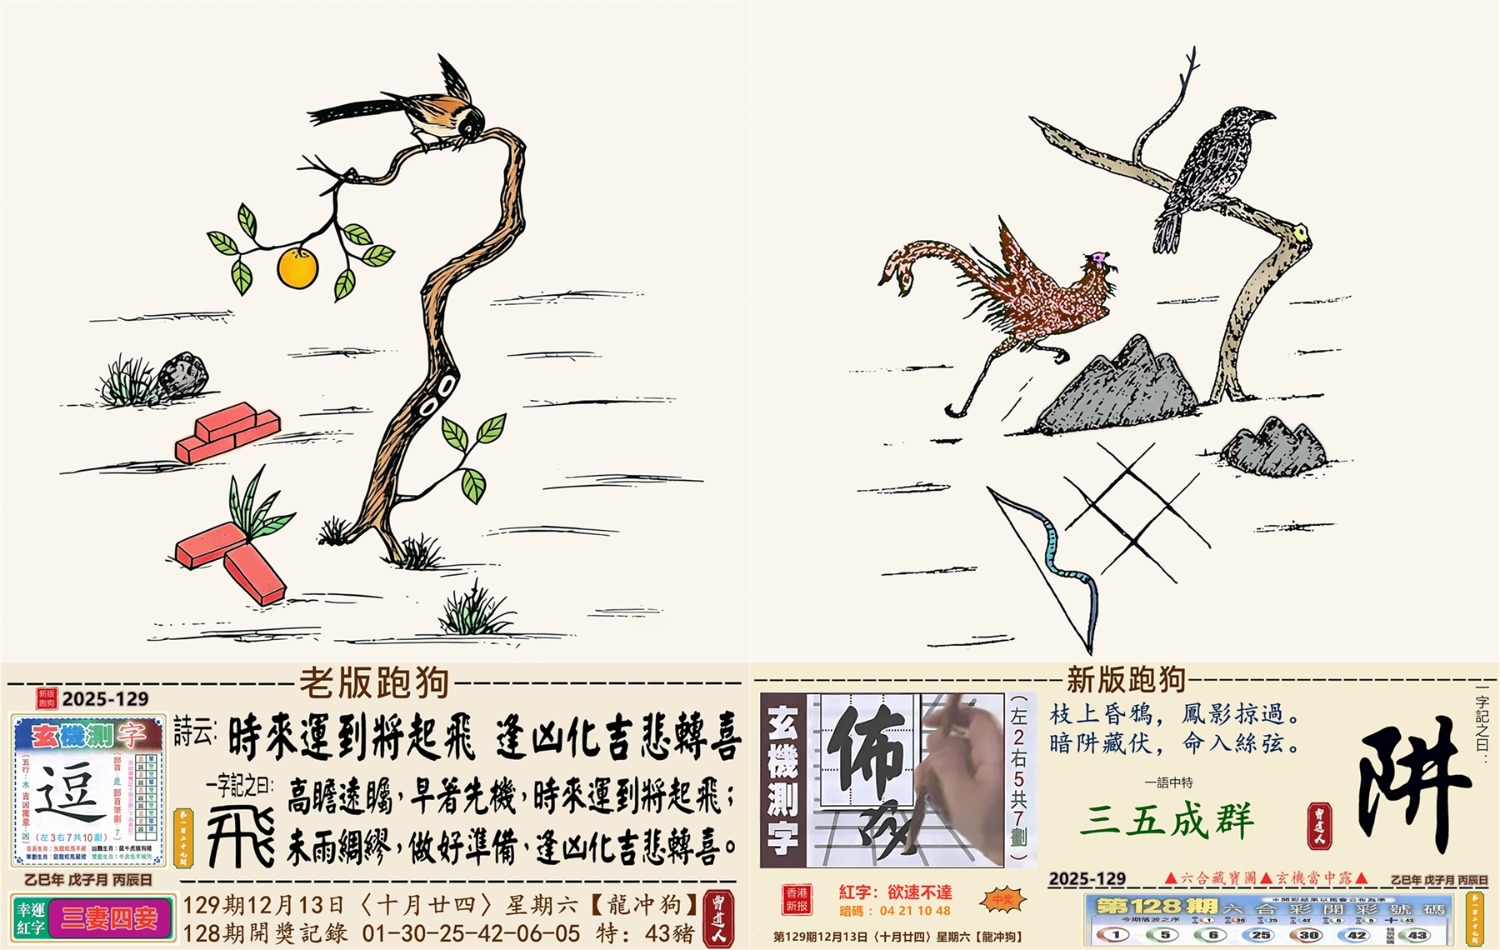 老版跑狗
新版跑狗
2025-129
玄機測字
逗
（五行：木 吉凶寓意：凶）
（左3右7共10劃）
第一百二十九期
乙巳年 戊子月 丙辰日
幸運紅字
三妻四妾
詩云: 時來運到將起飛 逢凶化吉悲轉喜
一字記之曰:
飛
高瞻遠矚，早著先機，時來運到將起飛；
未雨綢繆，做好準備，逢凶化吉悲轉喜。
129期12月13日〈十月廿四〉星期六【龍冲狗】
128期開獎記錄 01-30-25-42-06-05 特: 43豬
曾道人
新版跑狗
玄機測字
佈
（左2右5共7劃）
香港新报
紅字：欲速不達
暗碼：04 21 10 48
中奖
第129期12月13日〈十月廿四〉星期六【龍冲狗】
枝上昏鴉，鳳影掠過。
暗阱藏伏，命入絲弦。
一語中特
三五成群
曾道人
一字記之曰：
阱
2025-129
▲六合藏寶圖▲玄機當中露▲
乙巳年 戊子月 丙辰日
第128期 六合彩開彩號碼
今期落波之序
1 5 6 25 30 42 特別號碼 43
第一百二十九期